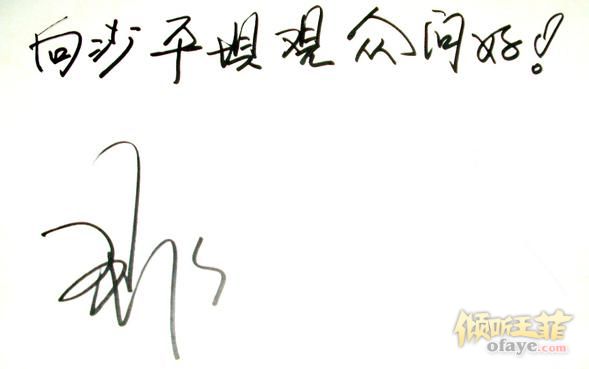 向沙平坝观众问好!
倾听王菲
ofaye.com